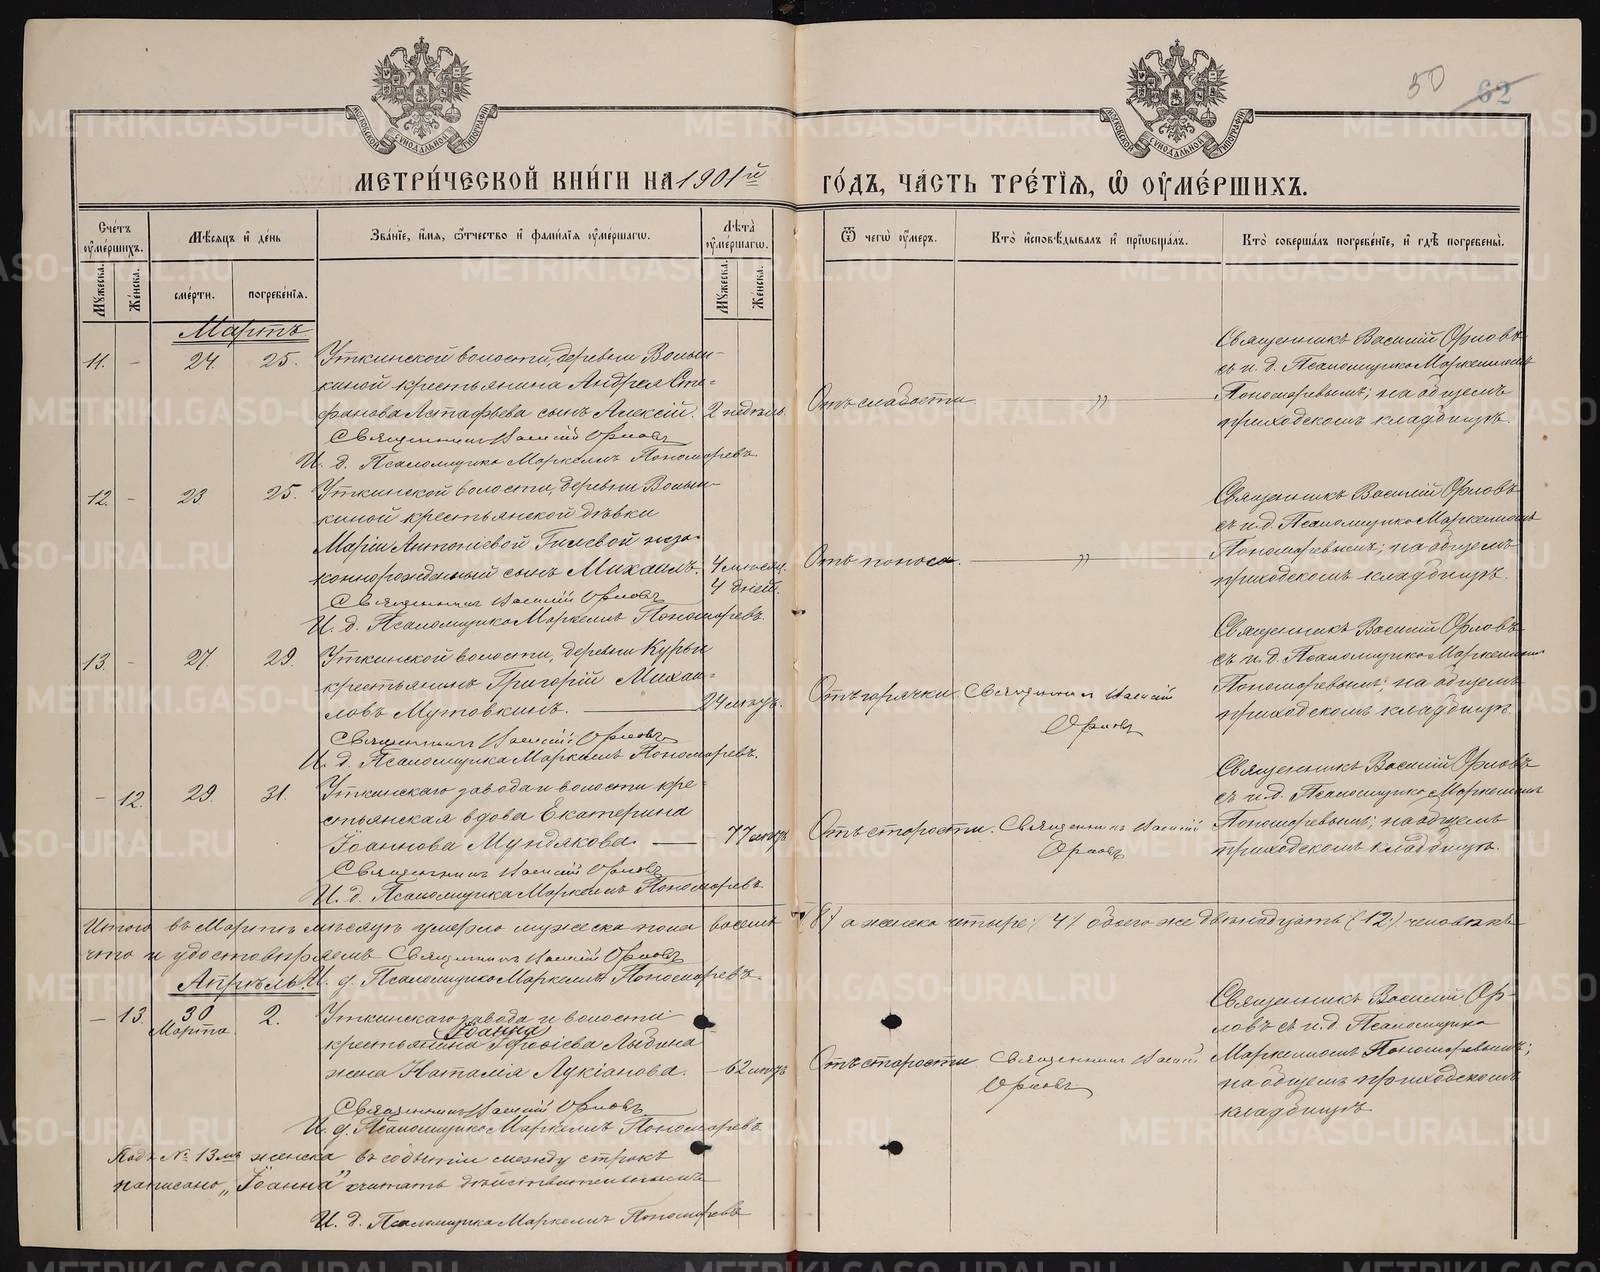 50 62
МЕТРИ́ЧЕСКОЙ КНИ́ГИ НА 1901й ГО́ДЪ, ЧА́СТЬ ТРЕ́ТІѦ, Ѡ ОУ҆МЕ́РШИХЪ.
Сче́тъ оу҆ме́ршихъ.
Мꙋжеска.
Же́нска.
Мѣсяцъ и де́нь
сме́рти.
погребе́нїѧ.
Зва́нїе, и҆мѧ, ѻ҆тчество и҆ фами́лїѧ оу҆ме́ршагѡ.
Лѣта̀ оу҆ме́ршагѡ.
Мꙋжеска.
Же́нска.
Ѿ чегѡ̀ оу҆́меръ.
Кто̀ и҆сповѣ́дывалъ и҆ прїѡбща́лъ.
Кто̀ соверша́лъ погребе́нїе, и҆ гдѣ̀ погребены̀.
Мартъ
11. - 24. 25. Уткинской волости, деревни Волын-
киной крестьянина Андрея Сте-
фанова Астафьева сынъ Алексій. 2 недѣль.
Священникъ Василій Орловъ
И. д. Псаломщика Маркеллъ Пономаревъ.
Отъ слабости. "
Священникъ Василій Орловъ
съ и. д. Псаломщика Маркелломъ
Пономаревымъ; на общемъ
приходскомъ кладбищѣ.
12. - 23 25. Уткинской волости, деревни Волын-
киной крестьянской дѣвки
Маріи Антоніевой Гилевой неза-
коннорожденный сынъ Михаилъ. 4 мѣсяц. 4 дней.
Священникъ Василій Орловъ
И. д. Псаломщика Маркеллъ Пономаревъ.
Отъ поноса. "
Священникъ Василій Орловъ
съ и. д. Псаломщика Маркелломъ
Пономаревымъ; на общемъ
приходскомъ кладбищѣ.
13. - 27. 29. Уткинской волости, деревни Курьи
крестьянинъ Григорій Михаи-
ловъ Мутовкинъ. 24 лѣтъ.
Священникъ Василій Орловъ
И. д. Псаломщика Маркеллъ Пономаревъ.
Отъ горячки. Священникъ Василій
Орловъ
Священникъ Василій Орловъ
съ и. д. Псаломщика Маркелломъ
Пономаревымъ; на общемъ
приходскомъ кладбищѣ.
- 12. 29. 31. Уткинскаго завода и волости кре-
стьянская вдова Екатерина
Іоаннова Мундякова. 77 лѣтъ
Священникъ Василій Орловъ
И. д. Псаломщика Маркеллъ Пономаревъ.
Отъ старости. Священникъ Василій
Орловъ
Священникъ Василій Орловъ
съ и. д. Псаломщика Маркелломъ
Пономаревымъ; на общемъ
приходскомъ кладбищѣ.
Итого въ Мартѣ мѣсяцѣ умерло мужеска пола восемь 8) а женска четыре (4) обоего же двѣнадцать (12) человѣкъ
что и удостовѣряемъ Священникъ Василій Орловъ
И. д. Псаломщика Маркеллъ Пономаревъ.
Апрѣль.
- 13. 30 Марта 2. Уткинскаго завода и волости
Іоанна
крестьянина Ерофіева Лыбина
жена Наталія Лукіанова. - 62 лѣтъ
Священникъ Василій Орловъ
И. д. Псаломщика Маркеллъ Пономаревъ
Отъ старости. Священникъ Василій
Орловъ
Священникъ Василій Ор-
ловъ съ и. д. Псаломщика
Маркелломъ Пономаревымъ;
на общемъ приходскомъ
кладбищѣ
Подъ № 13мъ женска въ событіи между строкъ
написано „Іоанна" считать дѣйствительнымъ
И. д. Псаломщика Маркеллъ Пономаревъ
METRIKI.GASO-URAL.RU